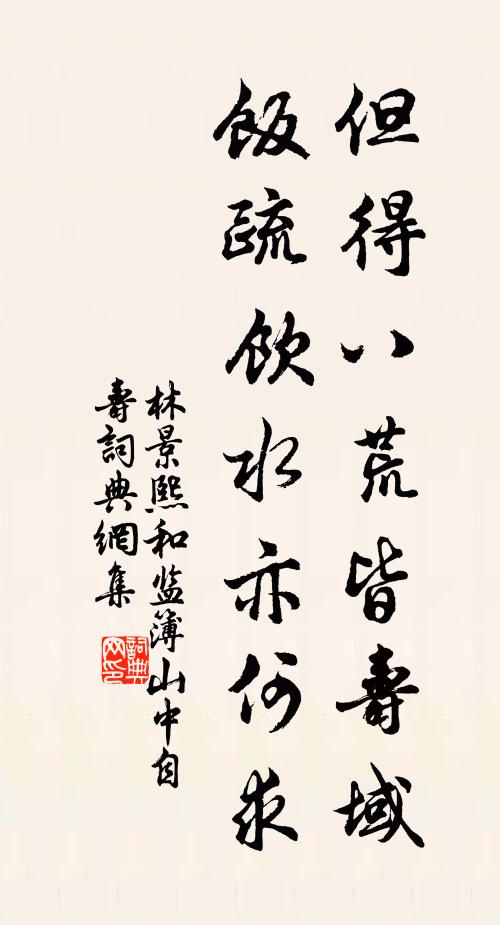 但得八荒皆壽域
飯疏飲水亦何求
林景熙和监簿山中自
壽詞典網集
詞典
网印